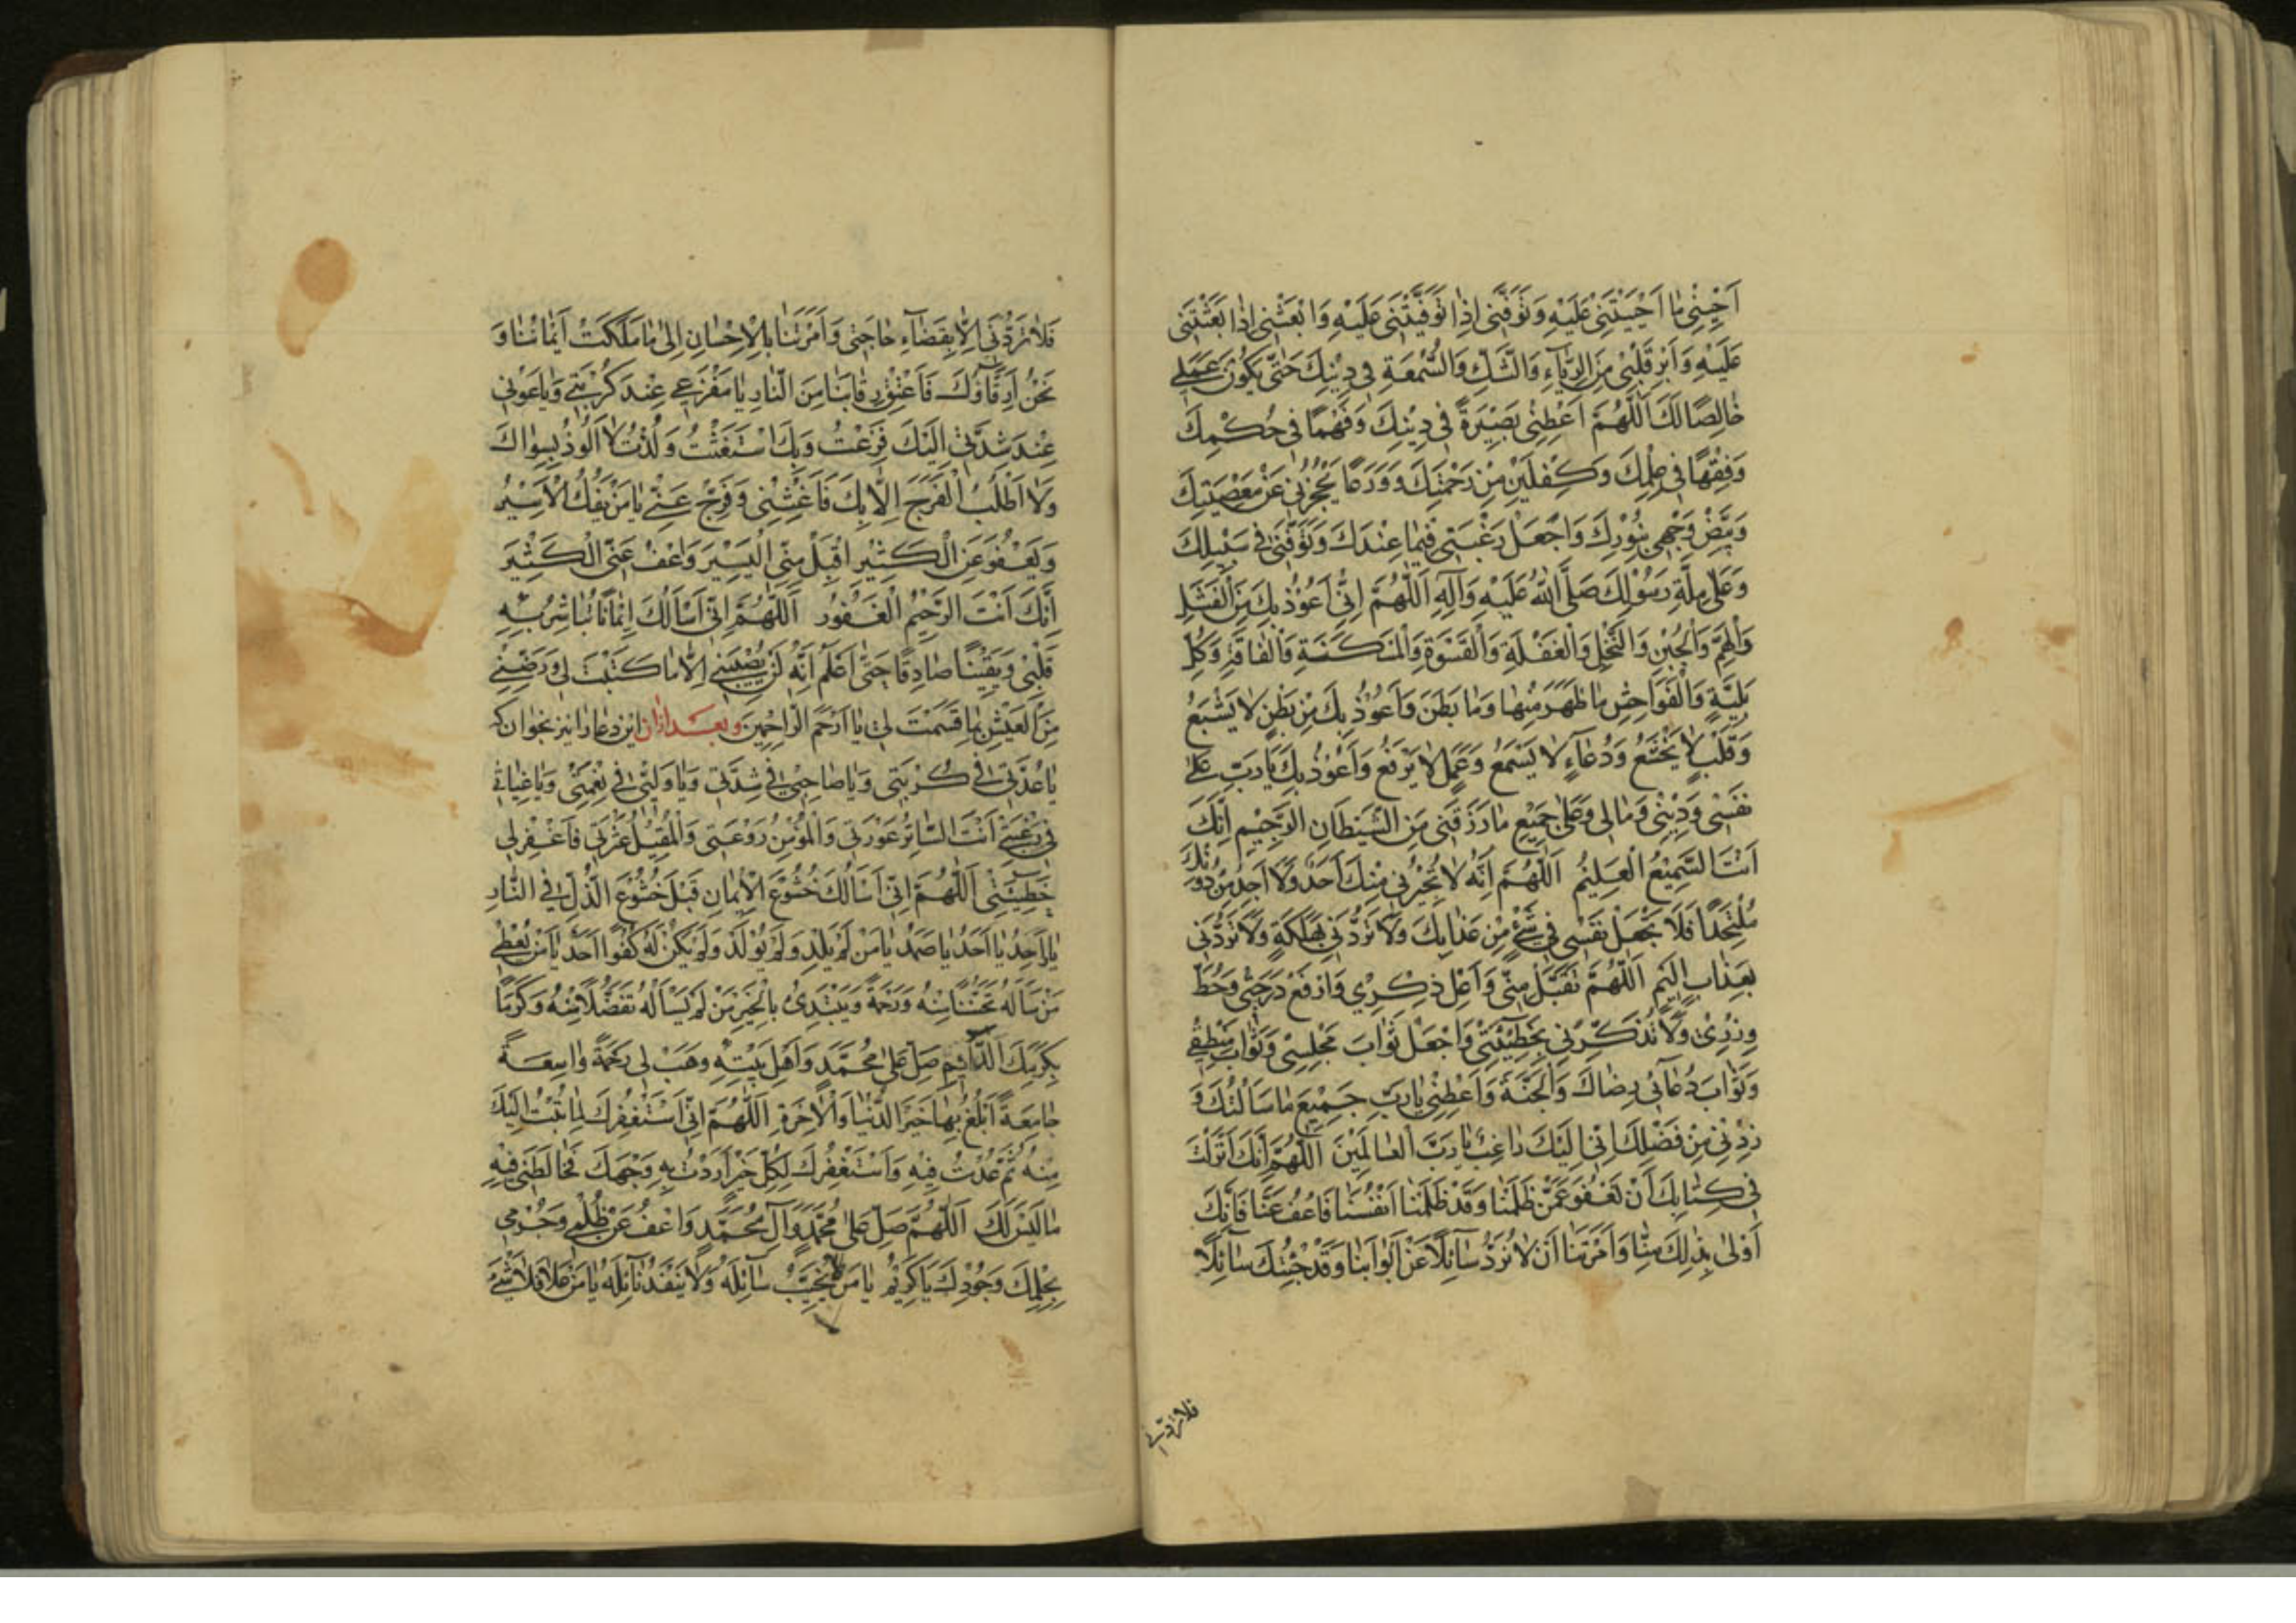 اَحْیِنِی مٰا اَحْیَیْتَنِی عَلَیْهِ وَتَوَفَّنِی اِذٰا تَوَفَّیْتَنِی عَلَیْهِ وَابْعَثْنِی اِذٰا بَعَثْتَنِی
عَلَیْهِ وَاَبْرِ قَلْبِی مِنَ الرِّیٰآءِ وَالشَّكِّ وَالسُّمْعَةِ فِی دِیْنِكَ حَتّٰی یَكُوْنَ عَمَلِی
خٰالِصًا لَكَ اَللّٰهُمَّ اَعْطِنِی بَصِیْرَةً فِی دِیْنِكَ وَفَهْمًا فِی حُكْمِكَ
وَفِقْهًا فِی عِلْمِكَ وَكِفْلَیْنِ مِنْ رَحْمَتِكَ وَوَرَعًا یَحْجُزُنِی عَنْ مَعْصِیَتِكَ
وَبَیِّضْ وَجْهِی بِنُوْرِكَ وَاجْعَلْ رَغْبَتِی فِیمٰا عِنْدَكَ وَتَوَفَّنِی فِی سَبِیْلِكَ
وَعَلٰی مِلَّةِ رَسُوْلِكَ صَلَّی اللّٰهُ عَلَیْهِ وَآلِهِ اَللّٰهُمَّ اِنِّی اَعُوْذُ بِكَ مِنَ الْفَشَلِ
وَالْهَمِّ وَالْجُبْنِ وَالْبُخْلِ وَالْغَفْلَةِ وَالْقَسْوَةِ وَالْمَسْكَنَةِ وَالْفٰاقَةِ وَكُلِّ
بَلِیَّةٍ وَالْفَوٰاحِشِ مٰا ظَهَرَ مِنْهٰا وَمٰا بَطَنَ وَاَعُوْذُ بِكَ مِنْ بَطْنٍ لٰا یَشْبَعُ
وَقَلْبٍ لٰا یَخْشَعُ وَدُعٰآءٍ لٰا یُسْمَعُ وَعَمَلٍ لٰا یُرْفَعُ وَاَعُوْذُ بِكَ یٰا رَبِّ عَلٰی
نَفْسِی وَدِیْنِی وَمٰالِی وَعَلٰی جَمِیْعِ مٰا رَزَقْتَنِی مِنَ الشَّیْطٰانِ الرَّجِیْمِ اِنَّكَ
اَنْتَ السَّمِیْعُ الْعَلِیْمُ اَللّٰهُمَّ اِنَّهُ لٰا یُجِیْرُنِی مِنْكَ اَحَدٌ وَلٰا اَجِدُ مِنْ دُوْنِكَ
مُلْتَحَدًا فَلَا تَجْعَلْ نَفْسِی فِی شَیْءٍ مِنْ عَذٰابِكَ وَلٰا تَرُدَّنِی بِهَلَكَةٍ وَلٰا تَرُدَّنِی
بِعَذٰابٍ اَلِیْمٍ اَللّٰهُمَّ تَقَبَّلْ مِنِّی وَاَعْلِ ذِكْرِی وَارْفَعْ دَرَجَتِی وَحُطَّ
وِزْرِی وَلٰا تَذْكُرْنِی بِخَطِیْئَتِی وَاجْعَلْ ثَوٰابَ مَجْلِسِی وَثَوٰابَ مَنْطِقِی
وَثَوٰابَ دُعٰآئِی رِضٰاكَ وَالْجَنَّةَ وَاَعْطِنِی یٰا رَبِّ جَمِیْعَ مٰا سَاَلْتُكَ وَ
زِدْنِی مِنْ فَضْلِكَ اِنِّی اِلَیْكَ رٰاغِبٌ یٰا رَبَّ الْعٰالَمِیْنَ اَللّٰهُمَّ اِنَّكَ اَنْزَلْتَ
فِی كِتٰابِكَ اَنْ نَعْفُوَ عَمَّنْ ظَلَمَنٰا وَقَدْ ظَلَمْنٰا اَنْفُسَنٰا فَاعْفُ عَنّٰا فَاِنَّكَ
اَوْلٰی بِذٰلِكَ مِنّٰا وَاَمَرْتَنٰا اَنْ لٰا نَرُدَّ سٰآئِلًا عَنْ اَبْوٰابِنٰا وَقَدْ جِئْتُكَ سٰآئِلًا
فلا تردنی
فَلٰا تَرُدَّنِی اِلّٰا بِقَضٰآءِ حٰاجَتِی وَاَمَرْتَنٰا بِالْاِحْسٰانِ اِلٰی مٰا مَلَكَتْ اَیْمٰانُنٰا وَ
نَحْنُ اَرِقّٰآؤُكَ فَاَعْتِقْ رِقٰابَنٰا مِنَ النّٰارِ یٰا مَفْزَعِی عِنْدَ كُرْبَتِی وَیٰا غَوْثِی
عِنْدَ شِدَّتِی اِلَیْكَ فَزِعْتُ وَبِكَ اسْتَغَثْتُ وَلُذْتُ لٰا اَلُوْذُ بِسِوٰاكَ
وَلٰا اَطْلُبُ الْفَرَجَ اِلّٰا بِكَ فَاَغِثْنِی وَفَرِّجْ عَنِّی یٰا مَنْ یَفُكُّ الْاَسِیْرَ
وَیَعْفُوْ عَنِ الْكَثِیْرِ اقْبَلْ مِنِّی الْیَسِیْرَ وَاعْفُ عَنِّی الْكَثِیْرَ
اِنَّكَ اَنْتَ الرَّحِیْمُ الْغَفُوْرُ اَللّٰهُمَّ اِنِّی اَسْاَلُكَ اِیْمٰانًا تُبٰاشِرُ بِهِ
قَلْبِی وَیَقِیْنًا صٰادِقًا حَتّٰی اَعْلَمَ اَنَّهُ لَنْ یُصِیْبَنِی اِلّٰا مٰا كَتَبْتَ لِی وَرَضِّنِی
مِنَ الْعَیْشِ بِمٰا قَسَمْتَ لِی یٰا اَرْحَمَ الرّٰاحِمِیْنَ وبعد ازان این دعا را نیز بخوان که
یٰا عُدَّتِی فِی كُرْبَتِی وَیٰا صٰاحِبِی فِی شِدَّتِی وَیٰا وَلِیِّی فِی نِعْمَتِی وَیٰا غِیٰاثِی
فِی رَغْبَتِی اَنْتَ السّٰاتِرُ عَوْرَتِی وَالْمُؤْمِنُ رَوْعَتِی وَالْمُقِیْلُ عَثْرَتِی فَاغْفِرْ لِی
خَطِیْئَتِی اَللّٰهُمَّ اِنِّی اَسْاَلُكَ خُشُوْعَ الْاِیْمٰانِ قَبْلَ خُشُوْعِ الذُّلِّ فِی النّٰارِ
یٰا وٰاحِدُ یٰا اَحَدُ یٰا صَمَدُ یٰا مَنْ لَمْ یَلِدْ وَلَمْ یُوْلَدْ وَلَمْ یَكُنْ لَهُ كُفُوًا اَحَدٌ یٰا مَنْ یُعْطِی
مَنْ سَاَلَهُ تَحَنُّنًا مِنْهُ وَرَحْمَةً وَیَبْتَدِئُ بِالْخَیْرِ مَنْ لَمْ یَسْاَلْهُ تَفَضُّلًا مِنْهُ وَكَرَمًا
بِكَرَمِكَ الدّٰآئِمِ صَلِّ عَلٰی مُحَمَّدٍ وَاَهْلِ بَیْتِهِ وَهَبْ لِی رَحْمَةً وٰاسِعَةً
جٰامِعَةً اَبْلُغُ بِهٰا خَیْرَ الدُّنْیٰا وَالْاٰخِرَةِ اَللّٰهُمَّ اِنِّی اَسْتَغْفِرُكَ لِمٰا تُبْتُ اِلَیْكَ
مِنْهُ ثُمَّ عُدْتُ فِیْهِ وَاَسْتَغْفِرُكَ لِكُلِّ خَیْرٍ اَرَدْتُ بِهِ وَجْهَكَ فَخٰالَطَنِی فِیْهِ
مٰا لَیْسَ لَكَ اَللّٰهُمَّ صَلِّ عَلٰی مُحَمَّدٍ وَآلِ مُحَمَّدٍ وَاعْفُ عَنْ ظُلْمِی وَجُرْمِی
بِحِلْمِكَ وَجُوْدِكَ یٰا كَرِیْمُ یٰا مَنْ لٰا یُخَیِّبُ سٰآئِلَهُ وَلٰا یَنْفَدُ نٰآئِلُهُ یٰا مَنْ عَلٰا فَلٰا شَیْءَ